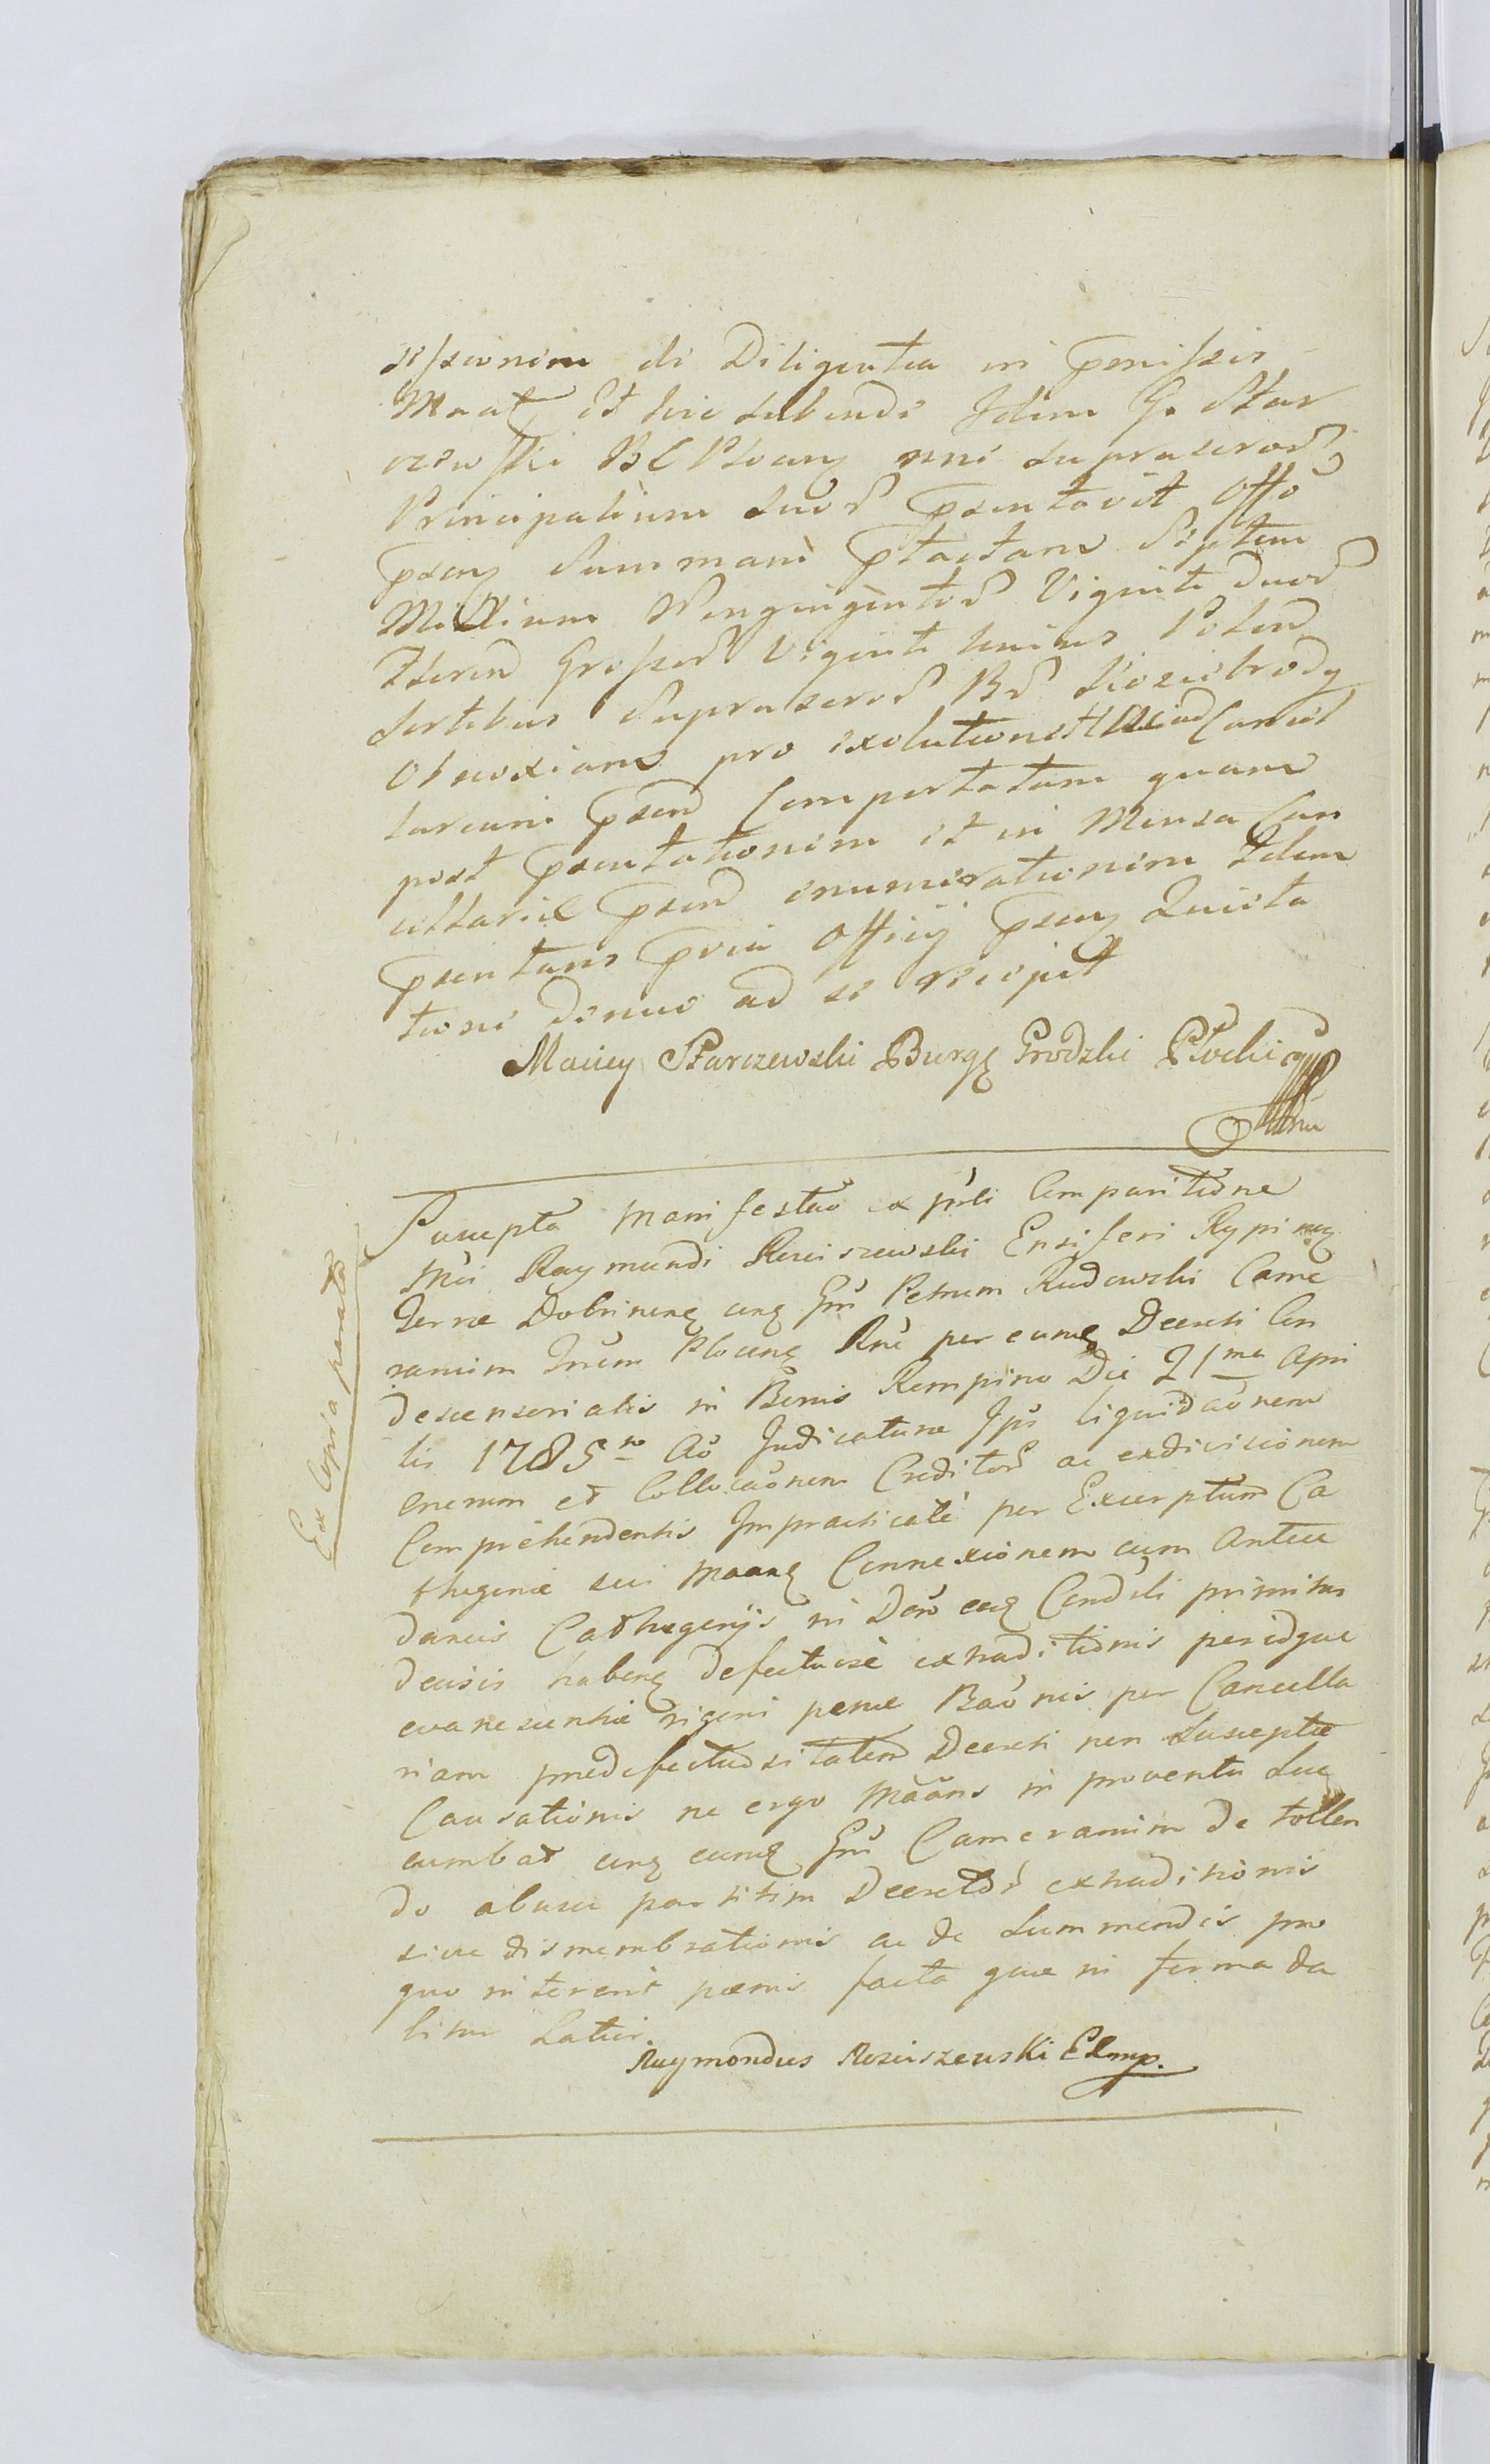 sessionem de Diligentia in pmissis
Maāt Et hic subinde Idem G. Star
czewski BC Plocen nōe suprascror̄
Principalium suor̄ pzentavit Offō
pzeny Summam ptactam Septem
Millium Nongingentor̄ Viginti duor̄
Florenō Grossor̄ Viginti unius Polon̄
sortibus suprascror̄ Br̄ Kozicbrody
Obnoxiam pro exolutione ad Cancel
lariam pzen̄ Comportatam quam
post pzentationem et in Mensa Can
cellariæ pzen̄ enumerationem Idem
pzentans pvia Officij pzeny Quieta
tione denuo ad se recepit
Maciey Starczewski Burgę Grodzki Płocki
Ex Copia parata
Suscepta Manifestaō ex psli Comparitione
Mci Raymundi Rosciszewski Ensiferi Rypineñ
Terræ Dobrinenę cnę Gm Petrum Rudowski Came
rarium Trrēm Plocenę Rne per eumę Decreti Con
descensorialis in Bonis Rempino Die 21ma Apri
lis 1785to Aō Judicaturæ Ips liquidaōnem
onerum et Collocaōnem Creditor̄ ac exdivisionem
Comprehendentis Impracticatè per Excerptum Ca
thegoriæ sui Maanę Connexionem cum Antece
daneis Cathegorijs in Deō eoę Condsli primitus
decisis habenę defectuosè extraditionis peridque
evanescentiæ rigoris penæ Baōnis per Cancella
riam prædefectuositatem Decreti non Susceptæ
Causationis ne ergo Maāns in proventu suc
cumbat cnę eumę Gm Camerarium de tollen
do abusu partitim Decretor̄ extraditionis
sive dismembrationis ac de summendis pro
quo intererit pænis facta quæ in forma da
bitur Latiori
Raymondus Rosciszewski ERmp.